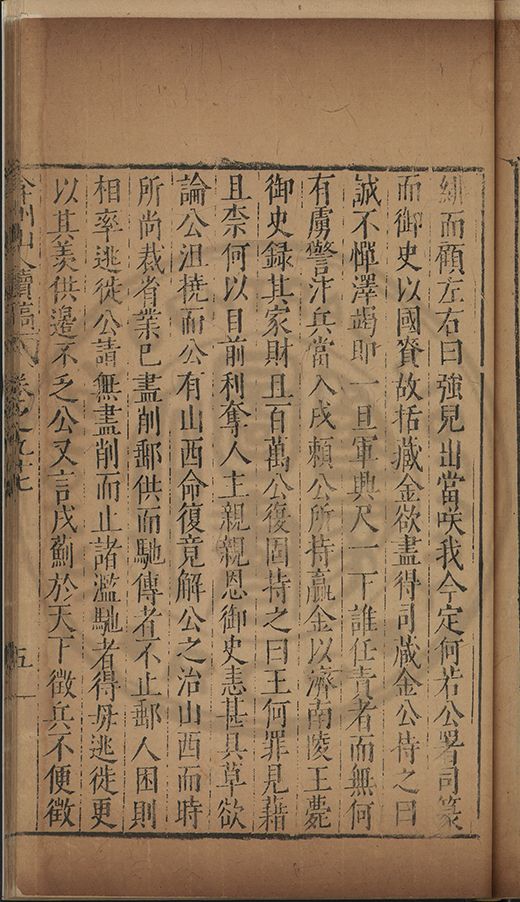 緋而顧左右曰強兒出當咲我今定何若公署司篆
而御史以國資故括藏金欲盡得司藏金公持之曰
誠不憚澤竭即一旦軍興尺一下誰任責者而無何
有虜警汴兵當入戍賴公所持贏金以濟南陵王薨
御史録其家財且百萬公復固持之曰王何罪見藉
且柰何以目前利奪人主親親恩御史恚甚具草欲
論公沮撓而公有山西命復竟解公之治山西而時
所尚裁省業已盡削郵供而馳傳者不止郵人困則
相率逃徙公請無盡削而止諸濫馳者得毋逃徙更
以其羨供邊不乏公又言戍薊於天下徵兵不便徵
弇州山人續稿 卷之九十七
五